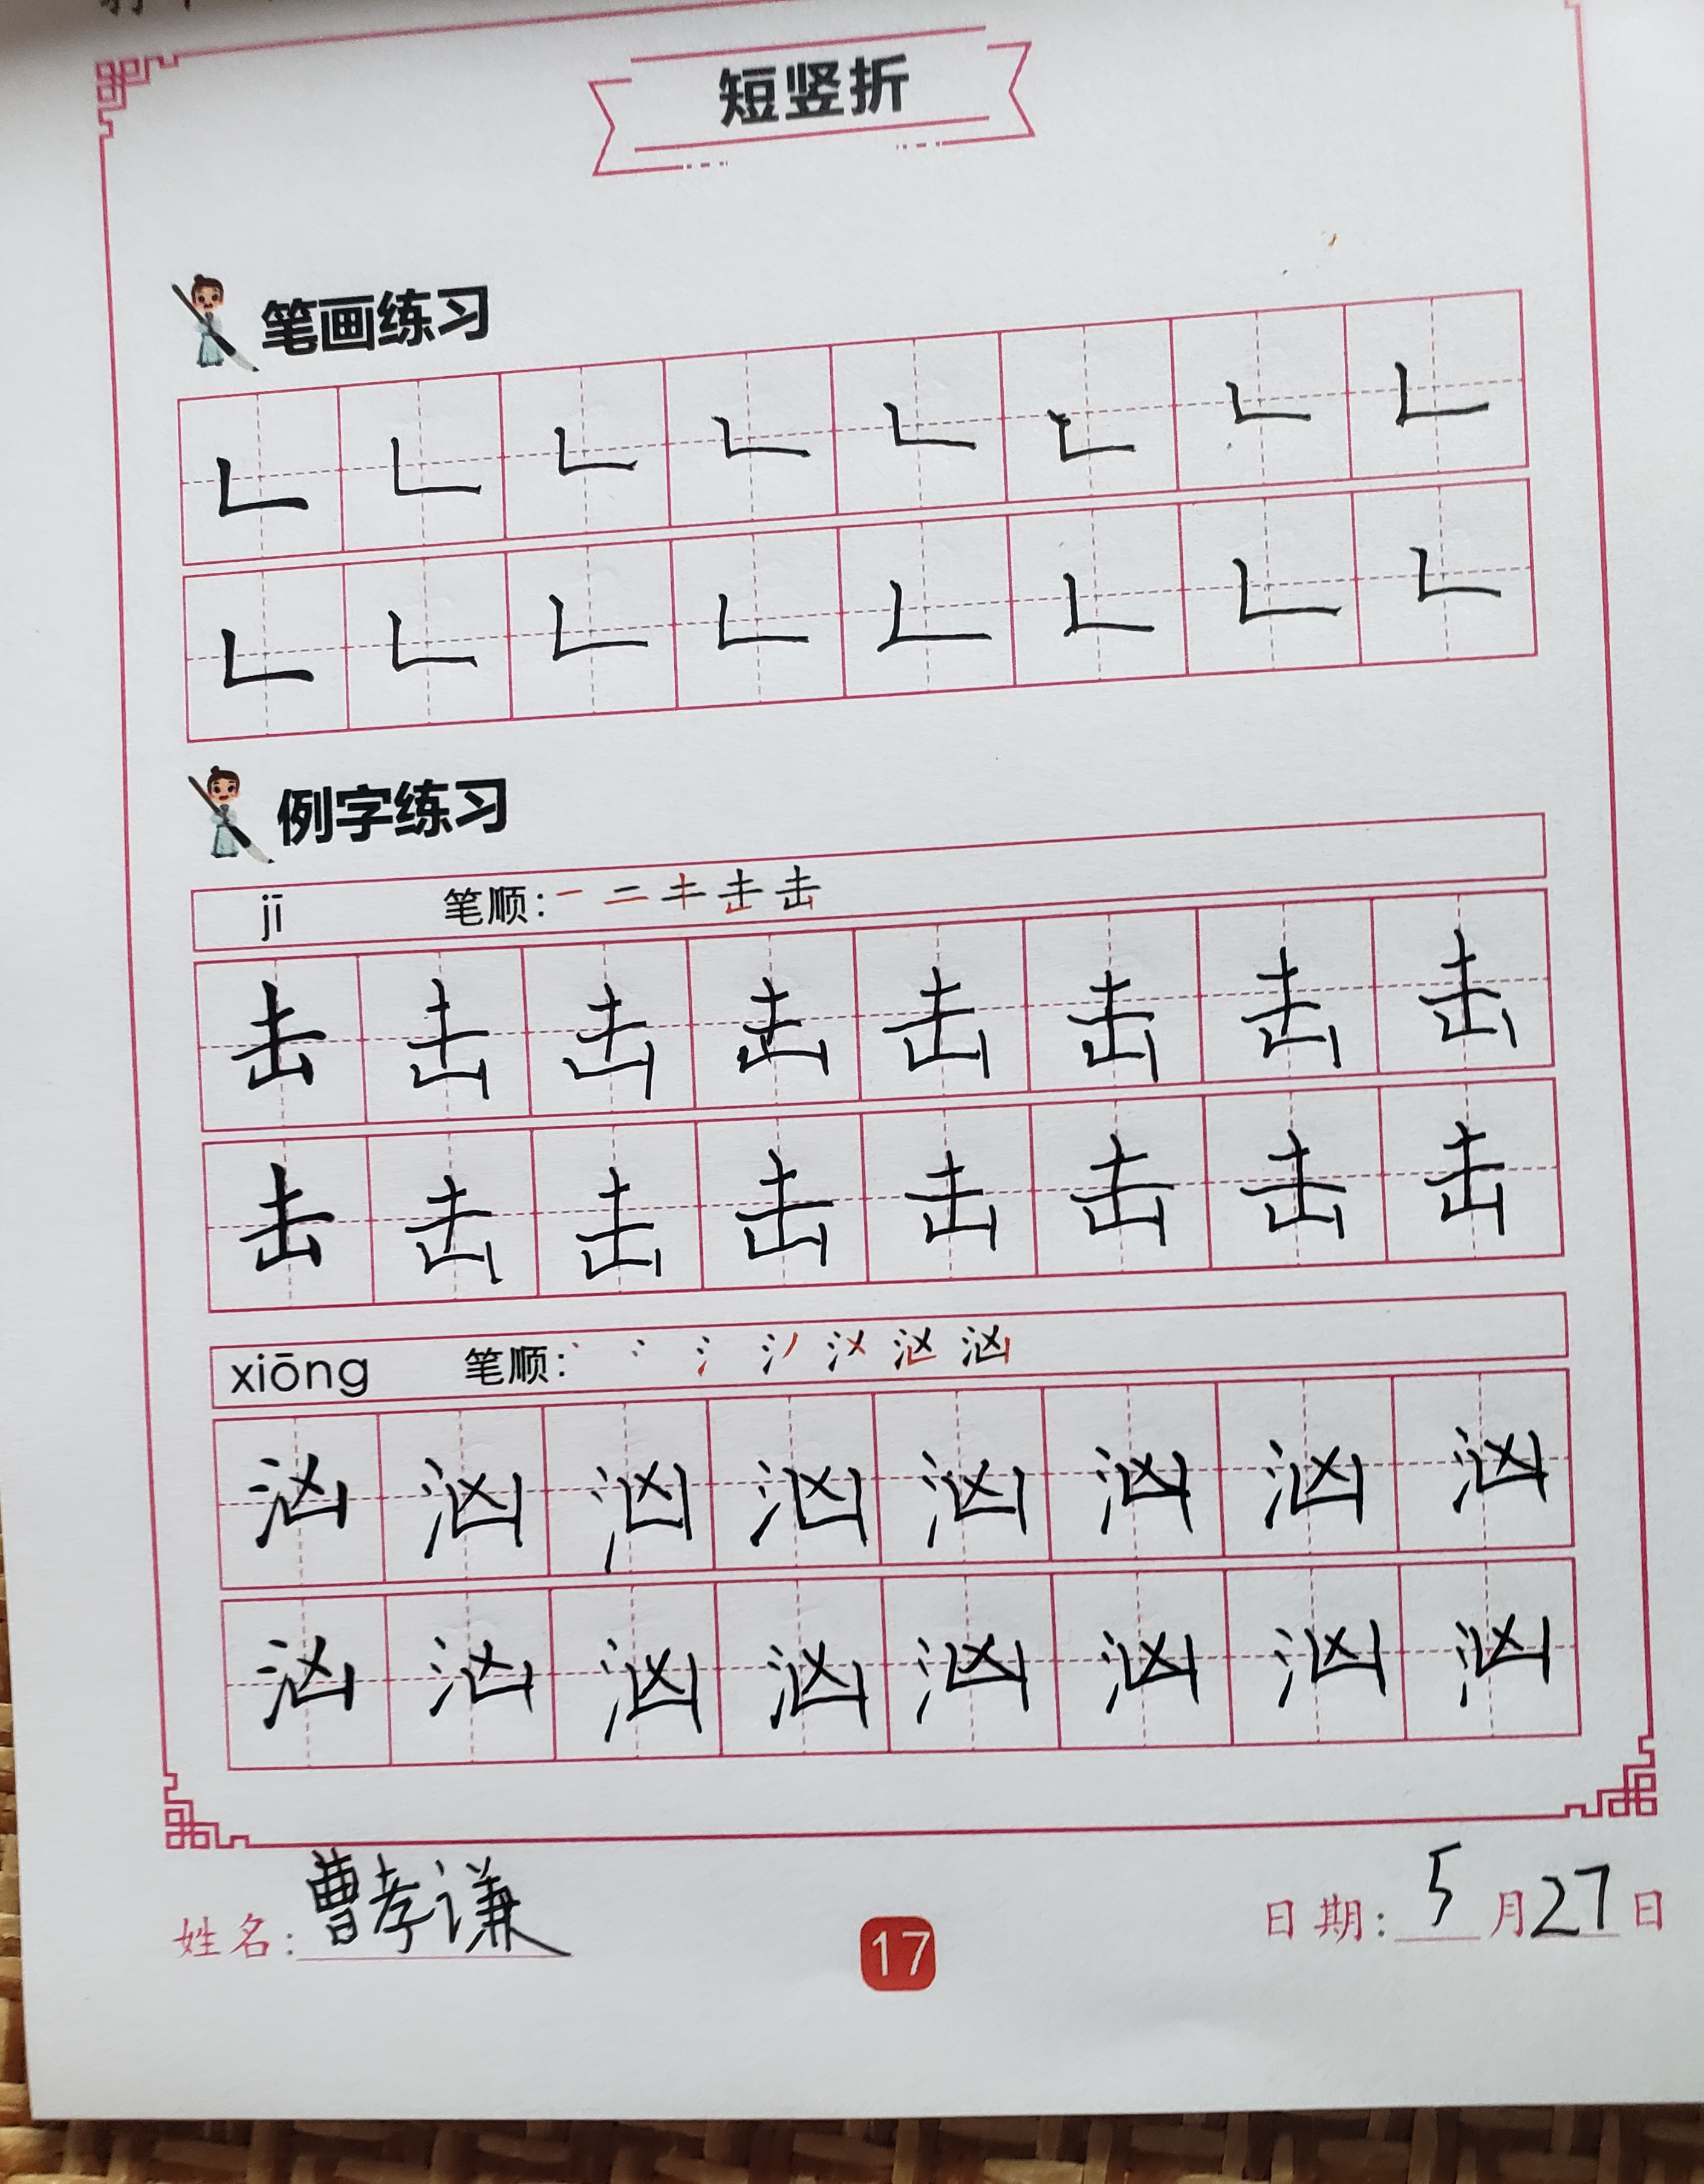 短竖折
笔画练习
𠃊 𠃊 𠃊 𠃊 𠃊 𠃊 𠃊 𠃊
𠃊 𠃊 𠃊 𠃊 𠃊 𠃊 𠃊 𠃊
例字练习
jī 笔顺：
击 击 击 击 击 击 击 击
击 击 击 击 击 击 击 击
xiōng 笔顺：
汹 汹 汹 汹 汹 汹 汹 汹
汹 汹 汹 汹 汹 汹 汹 汹
姓名：曹孝谦 17 日期：5月27日